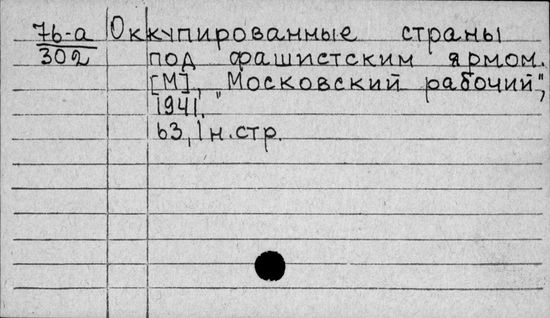 7б-а
302
Оккупированные страны
под фашистским ярмом.
[М], "Московский рабочий",
1941.
63, 1 н. стр.